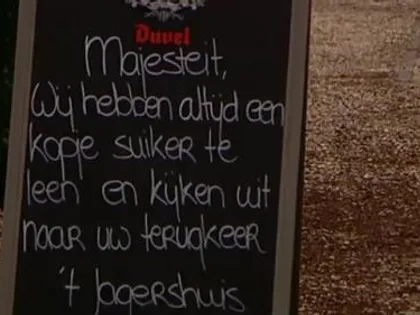 Duvel
Majesteit,
Wij hebben altijd een
kopje suiker te
leen en kijken uit
naar uw terugkeer
't Jagershuis